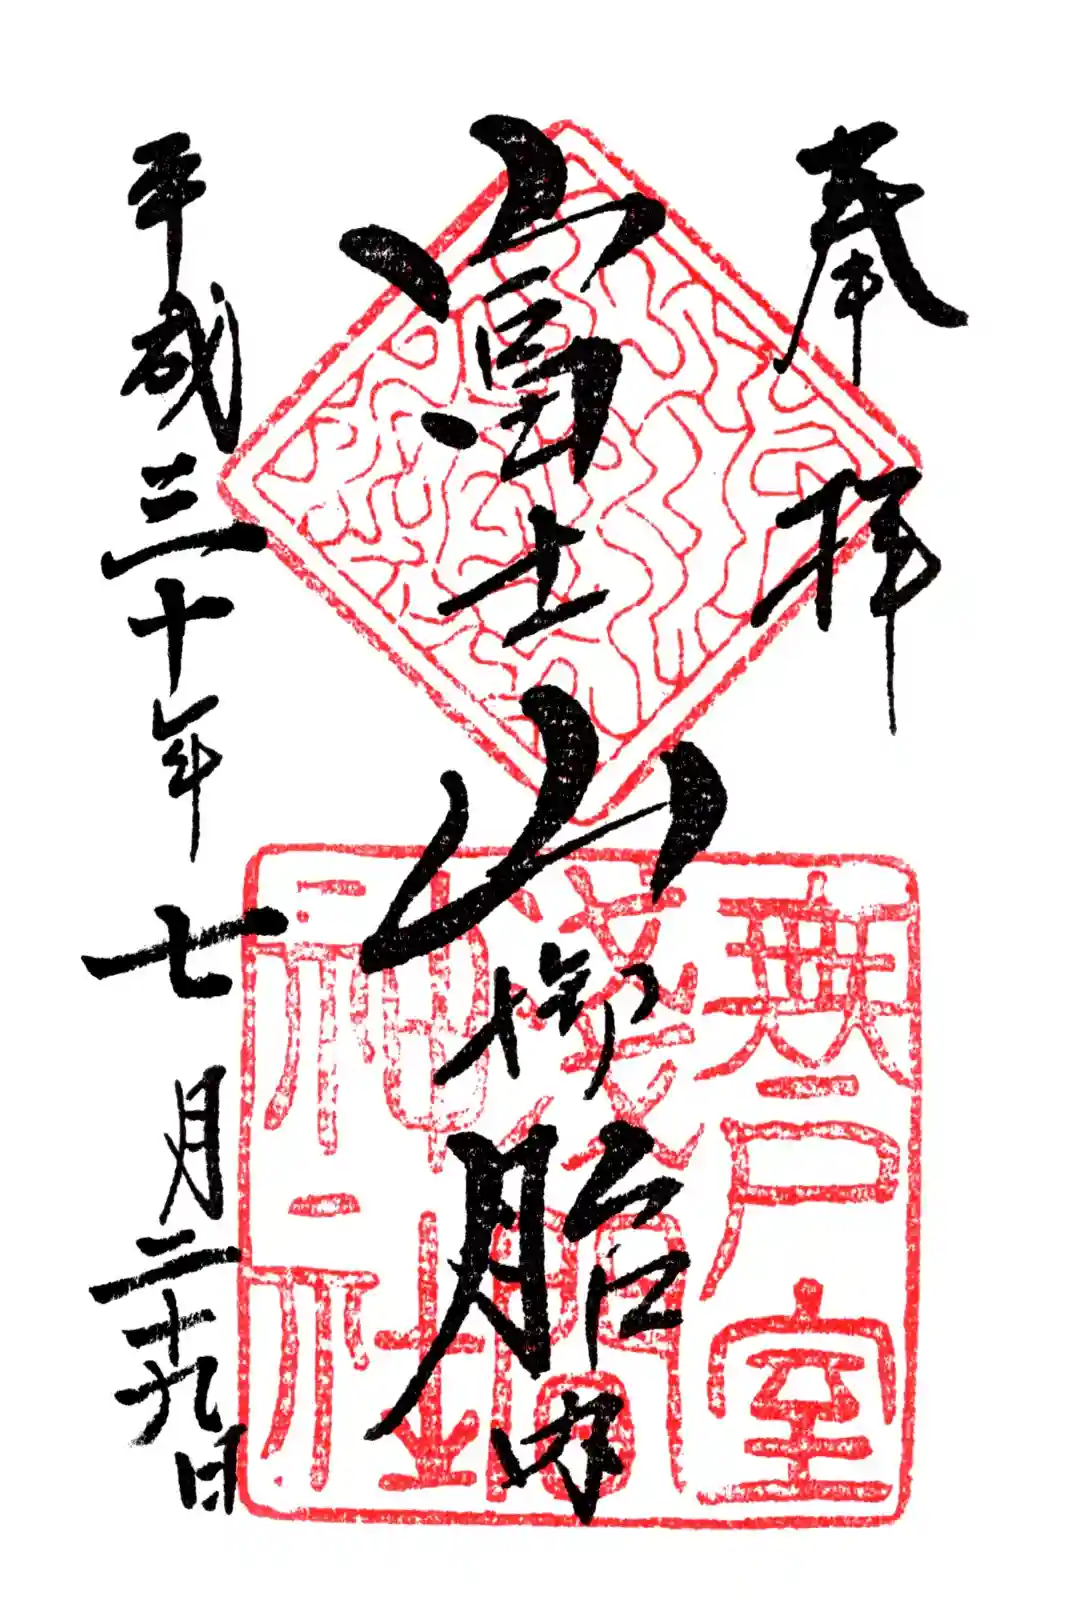 奉拝
富士山御胎内
無戸室
浅間
神社
平成三十年七月二十九日